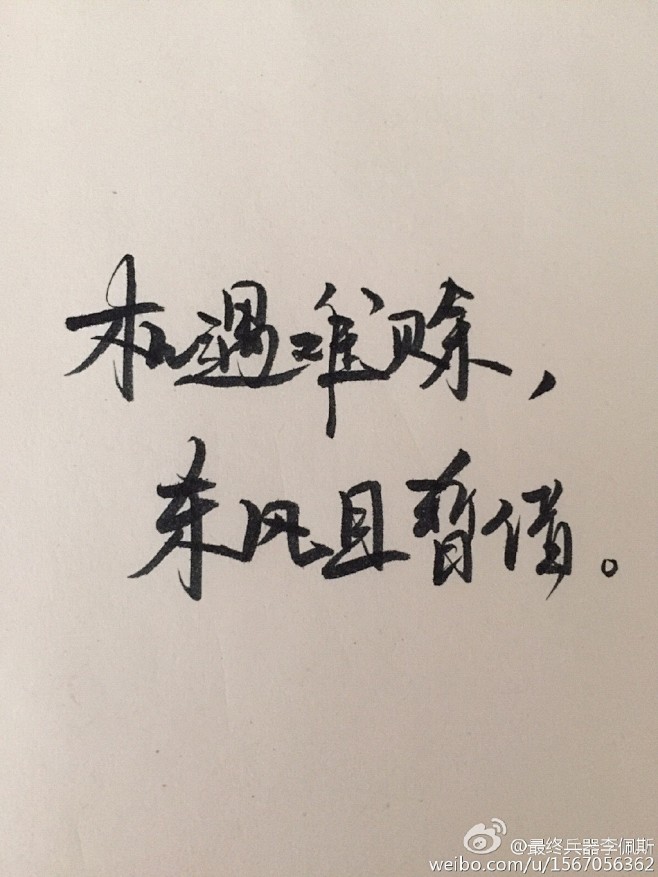 机遇难赊，
东风且暂借。
@最终兵器李佩斯
weibo.com/u/1567056362